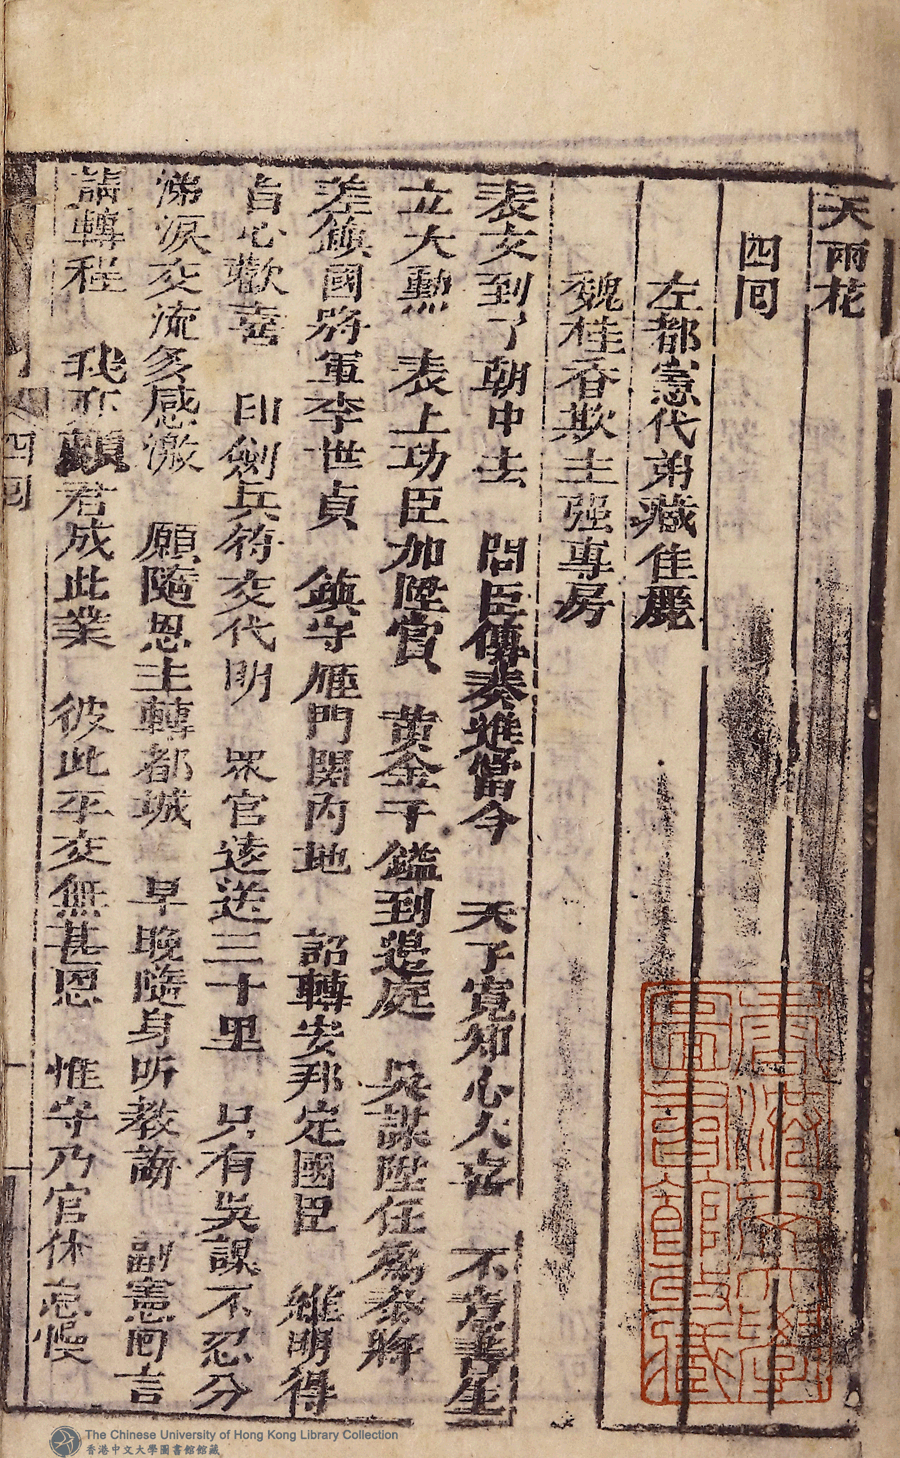 天雨花
四囘
左都憲代弟藏佳麗
魏桂香欺主强專房
表文到了朝中去 閣臣傳奏進當今 天子寛知心大喜 不意書生
立大勲 表上功臣加陞賞 黄金千鎰到邉庭 吳謀陞任爲叅將
差鎮國將軍李世貞 鎮守雁門関内地 詔轉安邦定國臣 維明得
旨心歡喜 印劍兵符交代明 眾官逺送三十里 只有吳謀不忍分
涕淚交流多感激 願隨恩主轉都城 早晚隨身听教誨 副憲囘言
請轉程 我亦頼君成此業 彼此平交無甚恩 惟守乃官休怠慢
四囘
香港中文大學
圖書館所藏
The Chinese University of Hong Kong Library Collection
香港中文大學圖書館館藏